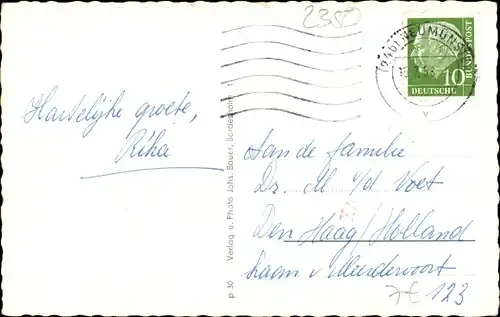 2380
(24b) NEUMÜNSTER
10
DEUTSCHE
BUNDESPOST
Hartelijke groete,
Riha
Verlag u. Photo Johs. Bauer, Bordesholm
p 30
Aan de familie
Dr. M v/d Voet
Den Haag/Holland
Laan v Meerdervoort
123